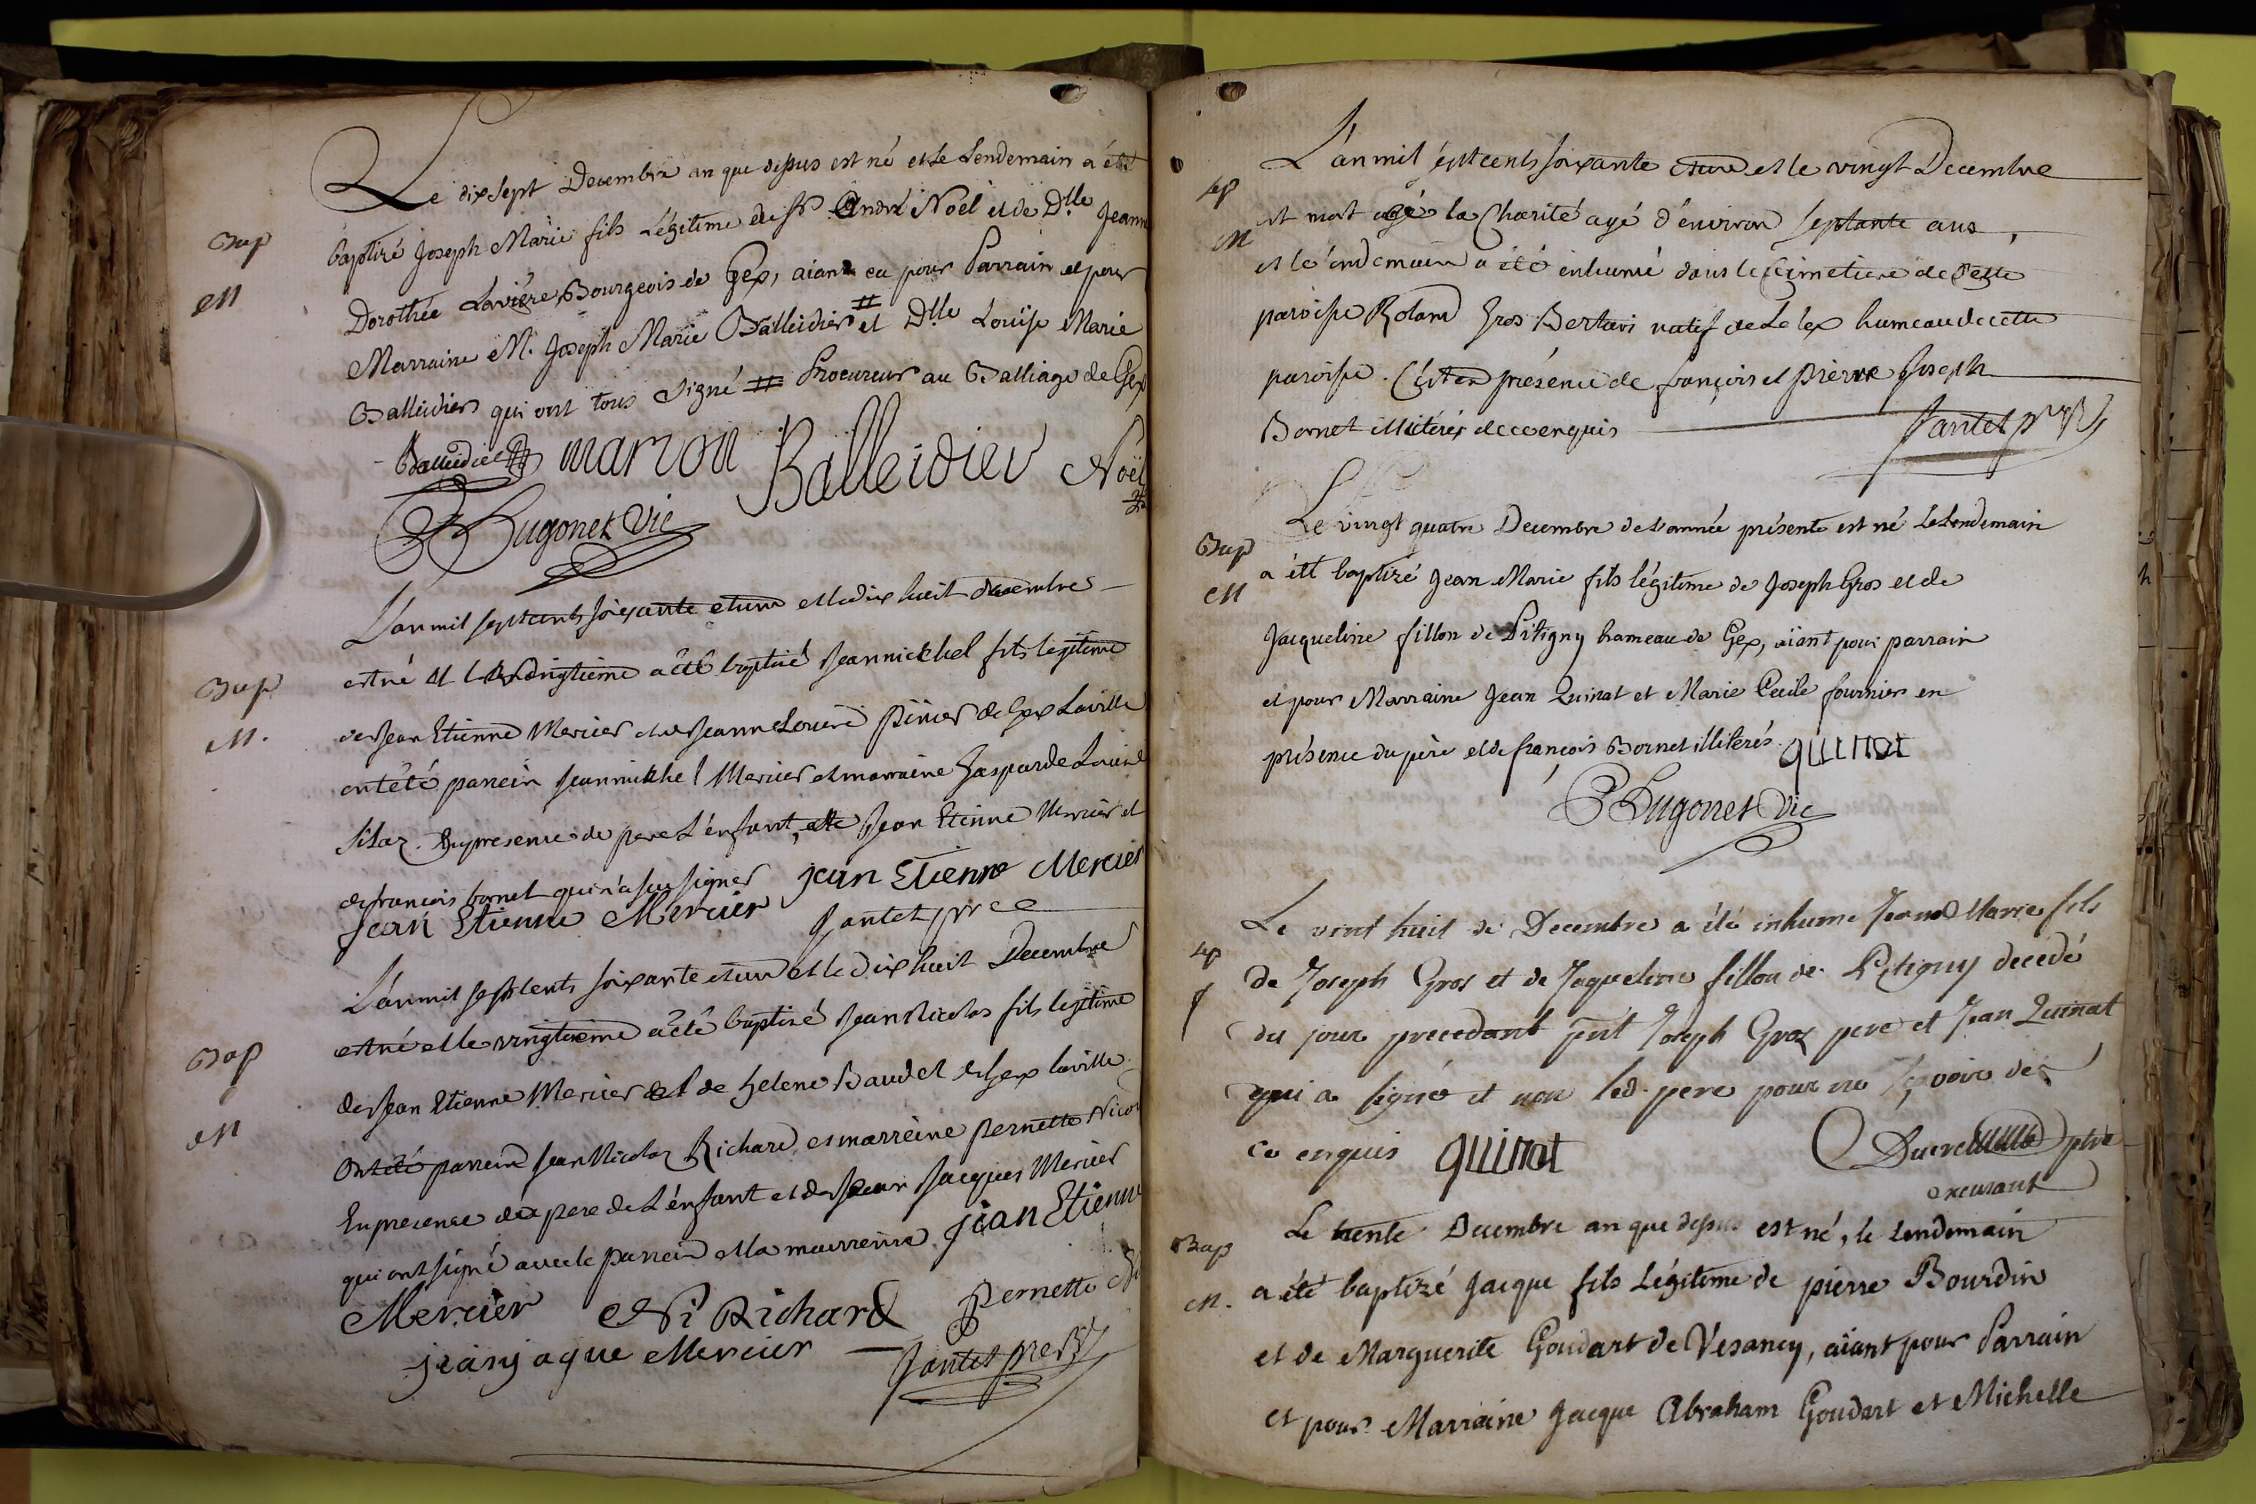 Le dix sept Decembre an que dessus est né et le Lendemain a été
Bap
baptizé Joseph Marie fils Légitime de Sr André Noël et de Dlle Jeanne
M
Dorothée Lavière Bourgeois de Gex, aiant eu pour Parrain et pour
Marraine M. Joseph Marie Balleidier # et Dlle Louise Marie
Balleidier qui ont tous signé # Procureur au Balliage de Gex
Balleidier marion Balleidier Noël
Hugonet vic
L'an mil sept cents soixante et un et le dix huit decembre
Bap
est né et le vingtieme a été baptisé Jean mickhel fils legitime
M.
de Jean Etienne Mercier et de Jeanne Louise de Gex La ville
ont été parrein Jean mickhel Mercier et marraine Gasparde Louise
En presence de pere de L'enfant, Jean Etienne Mercier et
de francois bornet qui n'a sçu signer jean Etienne Mercier
Jean Etienne Mercier Jantet
L'an mil sept cents soixante et un et le dix huit Decembre
Bap
est né et le vingtieme a été baptisé Jean Nicolas fils legitime
de Jean Etienne Mercier et de helene Baudet de Gex la ville
M
Ont été parrein Jean Nicolas Richard et marreine pernette Nicod
En presence de pere de L'enfant et de Jean Jacques Mercier
qui ont signé avec le parrein et la marreine jean Etienne
Mercier Ni Richard Pernette
jean jaque Mercier Jantet
L'an mil sept cents soixante et un et le vingt Decembre
sep
est mort à la Charité agé d'environ septante ans,
M
et le lendemain a été inhumé dans le Cimetiere de cette
paroisse Roland Gros natif de hameau de cette
paroisse. C'est en présence de françois et pierre Joseph
Bornet illiterés de ce enquis Jantet
Le vingt quatre Decembre de l'année présente est né Le Lendemain
Bap
a été baptizé Jean Marie fils légitime de Joseph Gros et de
M
Jacqueline fillon de Pitigny hameau de Gex, aïant pour parrain
et pour Marraine Jean Quinat et Marie Cecile fournier en
présence du père et de françois Bornet illiterés. quinat
Hugonet vic
Le vint huit de Decembre a été inhume Jean Marie fils
sep
de Joseph Gros et de Jaqueline fillon de Pitigny decedé
f
du jour precedant Joseph Gros pere et Jean Quinat
qui a signé et non led. pere pour ne sçavoir de
ce enquis quinat
Le trente Decembre an que dessus est né, le Lendemain
Bap
a été baptizé Jacque fils Légitime de pierre Bourdin
M.
et de Marguerite Goudart de Vesancy, aiant pour Parrain
et pour Marraine Jacque Abraham Goudart et Michelle